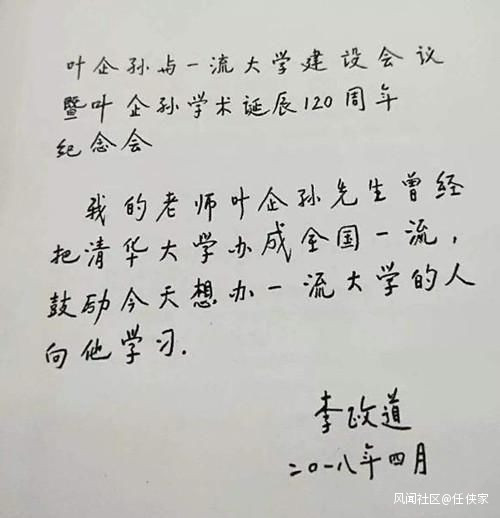 叶企孙与一流大学建设会议
暨叶企孙学术诞辰120周年
纪念会
我的老师叶企孙先生曾经
把清华大学办成全国一流,
鼓励今天想办一流大学的人
向他学习.
李政道
二〇一八年四月
风闻社区@任侠家